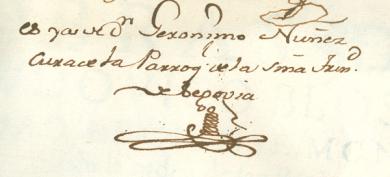 es ya de Dn Geronimo Nuñez
Cura de la Parroq.l de la Sma Trin.d
de Segovia